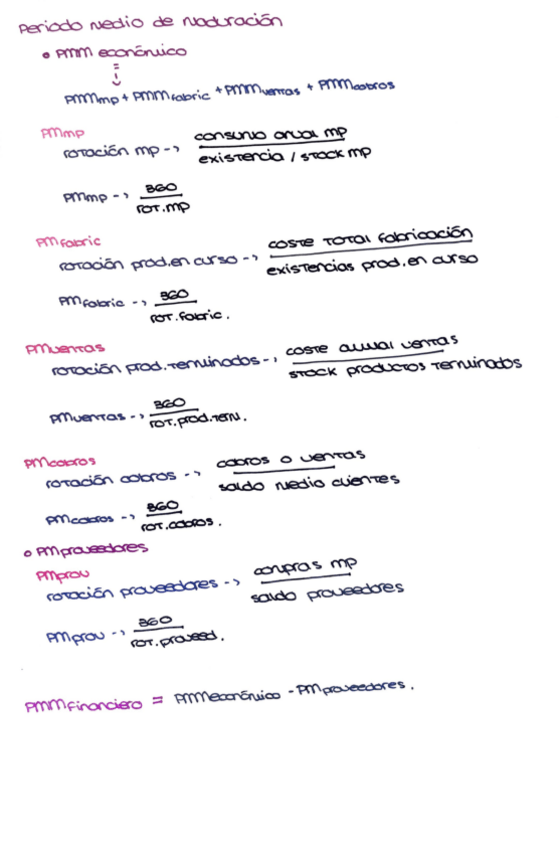 Periodo Medio de Maduración
• PMM económico
=
PMMmp + PMMfabric + PMMventas + PMMcobros
PMmp
rotación mp -> consumo anual mp
existencia / stock mp
PMmp -> 360
rot.mp
PMfabric
rotación prod.en curso -> coste total fabricación
existencias prod.en curso
PMfabric -> 360
rot.fabric.
PMventas
rotación prod.terminados -> coste anual ventas
stock productos terminados
PMventas -> 360
rot.prod.term.
PMcobros
rotación cobros -> cobros o ventas
saldo medio clientes
PMcobros -> 360
rot.cobros.
• PMproveedores
PMprov
rotación proveedores -> compras mp
saldo proveedores
PMprov -> 360
rot.proveed.
PMMfinanciero = PMMeconómico - PMproveedores.